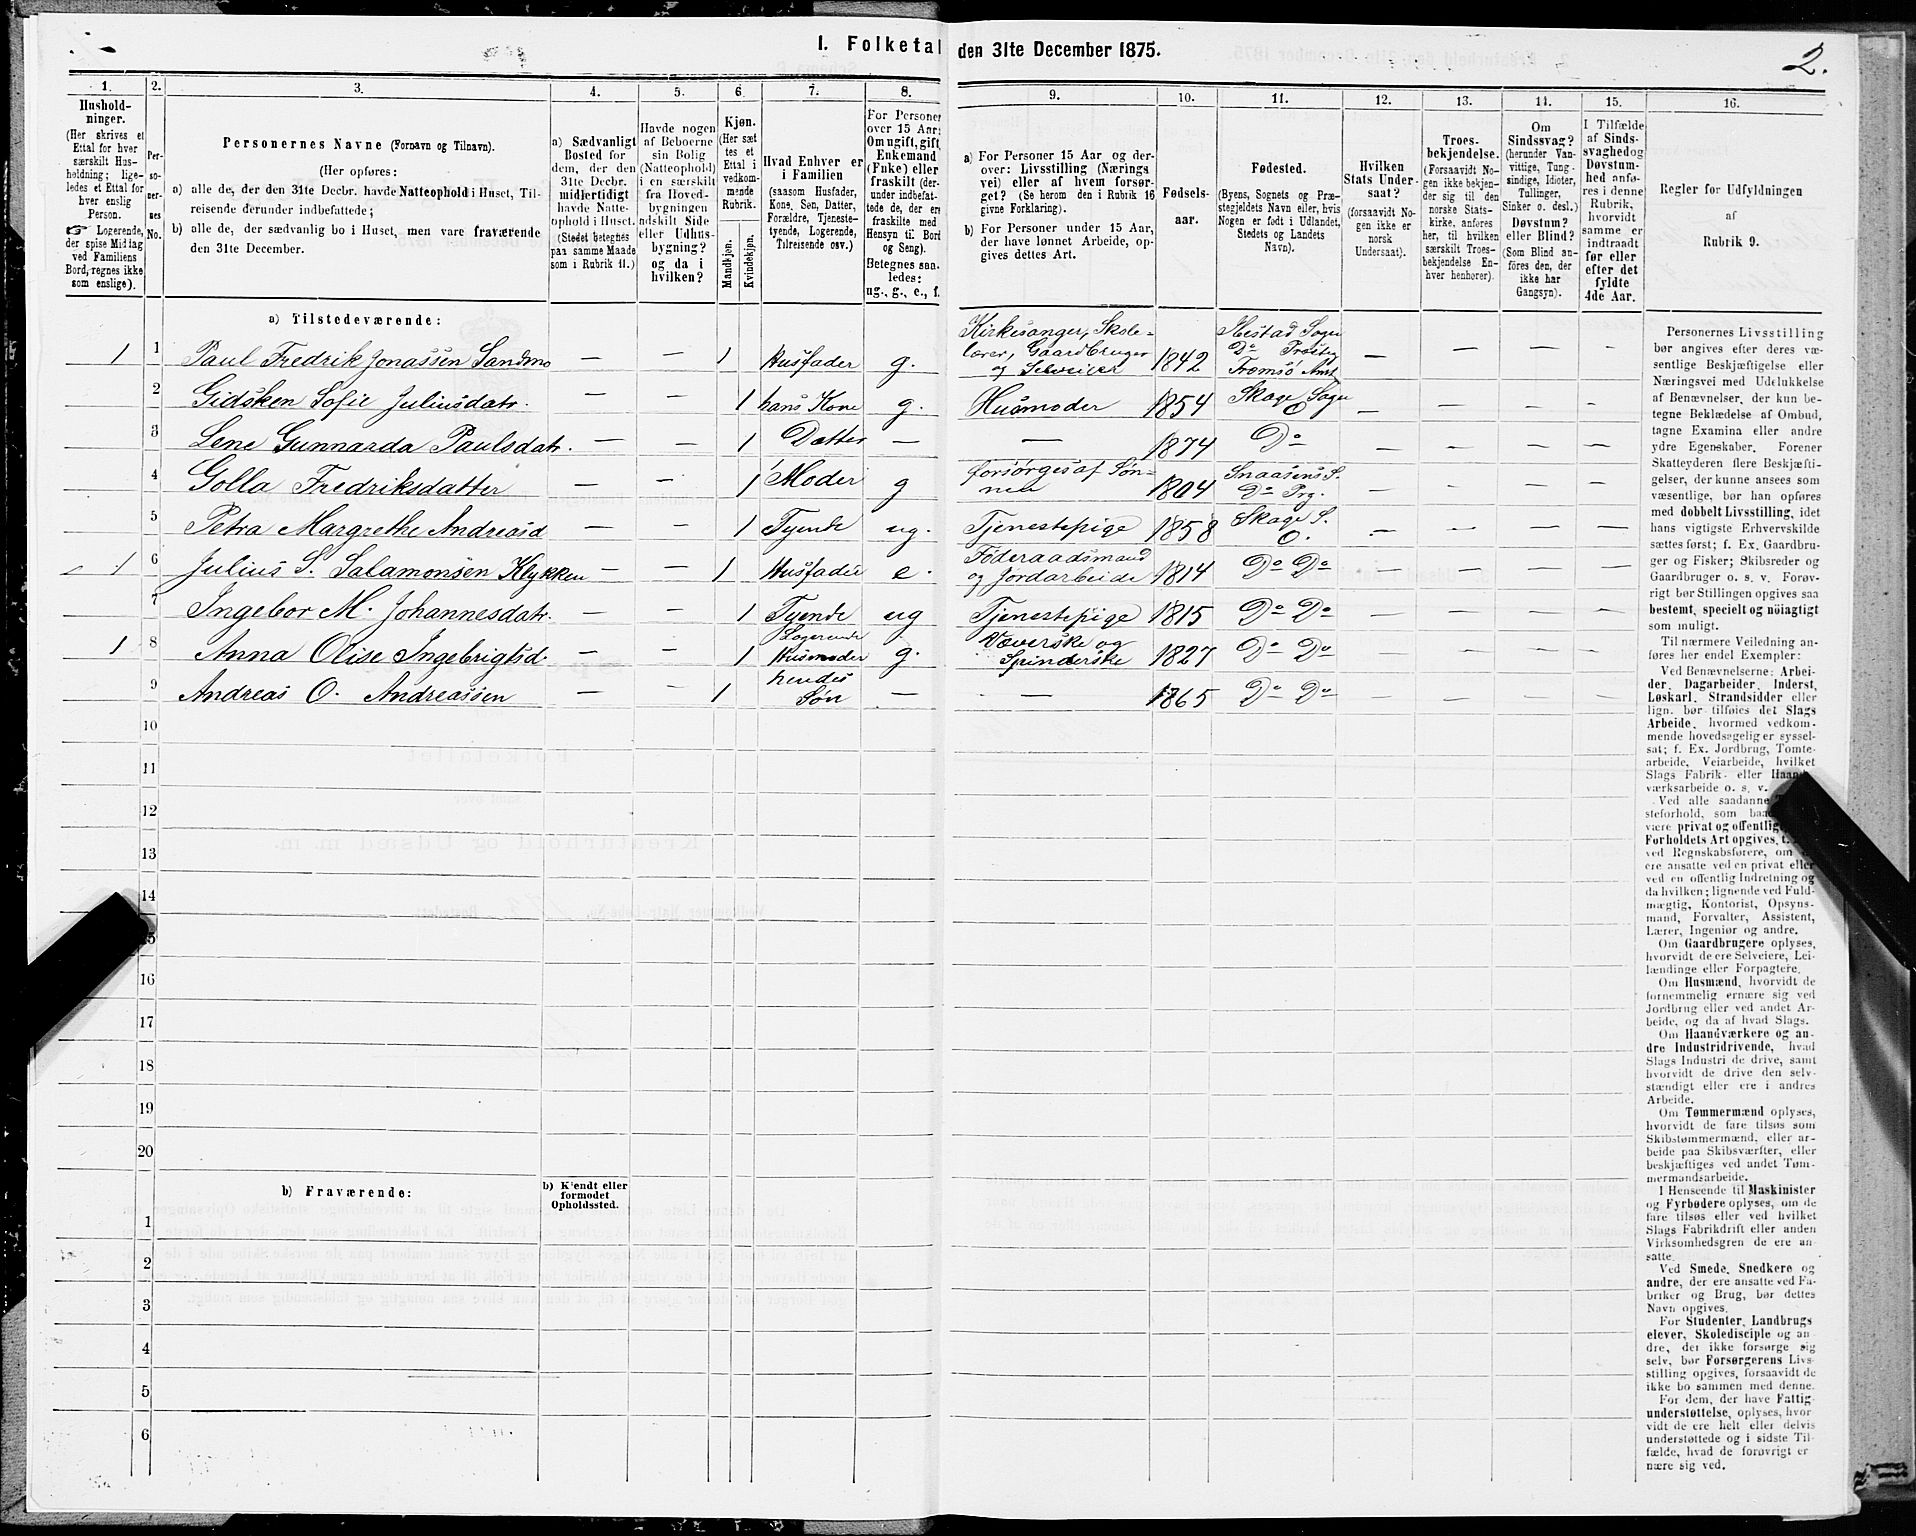 I. Folketal den 31te December 1875.
2.
1. 2. 3. 4. 5. 6. 7. 8. 9. 10. 11. 12. 13. 14. 15. 16.
Hushold-
ninger.
(Her skrives et
Ettal for hver
særskilt Hus-
holdning; lige-
ledes et Ettal for
hver enslig
Person.
☞ Logerende,
der spise Middag
ved Familiens
Bord, regnes ikke
som enslige).
Per-
so-
ner-
nes
No.
Personernes Navne (Fornavn og Tilnavn).
(Her opføres:
a) alle de, der den 31te Decbr. havde Natteophold i Huset, Til-
reisende derunder indbefattede;
b) alle de, der sædvanlig bo i Huset, men vare fraværende
den 31te December.
a) Sædvanligt
Bosted for
dem, der den
31te Decbr.
midlertidigt
havde Natte-
ophold i Huset.
(Stedet betegnes
paa samme Maade
som i Rubrik 11.)
Havde nogen
af Beboerne
sin Bolig
(Natteophold)
i en særskilt
fra Hoved-
bygningen
adskilt Side
eller Udhus-
bygning?
og da i
hvilken?
Kjøn.
(Her sæt
tes et
Ettal i
vedkom-
mende
Rubrik.
Mandkjøn.
Kvindekjøn.
Hvad Enhver er
i Familien
(saasom Husfader,
Kone, Søn, Datter,
Forældre, Tjeneste-
tyende, Logerende,
Tilreisende osv.)
For Personer
over 15 Aar:
Om ugift, gift,
Enkemand
(Enke) eller
fraskilt (der-
under indbefat-
tede de, der ere
fraskilte med
Hensyn til Bord
og Seng).
Betegnes saa-
ledes:
ug., g., e., f.
a) For Personer 15 Aar og der-
over: Livsstilling (Nærings
vei) eller af hvem forsør-
get? (Se herom den i Rubrik 16
givne Forklaring).
b) For Personer under 15 Aar,
der have lønnet Arbeide, op-
gives dettes Art.
Fødsels-
aar.
Fødested.
(Byens, Sognets og Præ-
stegjeldets Navn eller, hvis
Nogen er født i Udlandet,
Stedets og Landets
Navn).
Hvilken
Stats Under-
saat?
(forsaavidt No-
gen ikke er
norsk
Undersaat).
Troes-
bekjendelse.
(Forsaavidt No-
gen ikke bekjen-
der sig til den
norske Stats-
kirke, anføres
her, til hvilken
særskilt Troes-
bekjendelse En-
hver henhører).
Om
Sindssvag?
(herunder Van-
vittige, Tung-
sindige, Idioter,
Tullinger,
Sinker o. desl.)
Døvstum?
eller Blind?
(Som Blind an-
føres den, der
ikke har
Gangsyn).
I Tilfælde
af Sinds-
svaghed og
Døvstum-
hed anfø-
res i denne
Rubrik,
hvorvidt
samme er
indtraadt
før eller
efter det
fyldte
4de Aar.
Regler for Udfyldningen
af
Rubrik 9.
a) Tilstedeværende:
1 1 Paul Fredrik Jonassen Sandmo — — 1 Husfader g. Kirkesanger, Skole-
lærer, Gaardbruger
og Selveier 1842 Ibestad Sogn
Do Præstg
Tromsö Amt — — — —
2 Gidsken Sofie Juliusdatr. — — 1 hans Kone g. Husmoder 1854 Skage Sogn
O — — — —
3 Lene Gunnarda Paulsdatr. — — 1 Datter — — 1874 Do — — — —
4 Golla Fredriksdatter — — 1 Moder g forsörges af Søn-
nen 1804 Snaasens S.
Do Prg. — — — —
5 Petra Margrethe Andreasd — — 1 Tyende ug. Tjenestepige 1858 Skage S.
O. — — — —
1 6 Julius S. Salamonsen Klykken — — 1 Husfader e. Föderaadsmand
og Jordarbeide 1814 Do Do — — — —
7 Ingebor M. Johannesdatr. — — 1 Tyende ug Tjenestepige 1815 Do Do — — — —
1 8 Anna Olise Ingebrigtsd. — — 1 Logerende
Husmoder g. Væverske og
Spinderske 1827 Do Do — — — —
9 Andreas O. Andreassen — — 1 hendes
Søn — — 1865 Do Do — — — —
10
11
12
13
14
15
16
17
18
19
20
b) Fraværende:
b) Kjendt eller
formodet
Opholdssted.
1
2
3
4
5
6
Personernes Livsstilling
bør angives efter deres væ-
sentlige Beskjæftigelse eller
Næringsvei med Udelukkelse
af Benævnelser, der kun be-
tegne Beklædelse af Ombud,
tagne Examina eller andre
ydre Egenskaber. Forener
Skatteyderen flere Beskjæfti-
gelser, der kunne ansees som
væsentlige, bør han opføres
med dobbelt Livsstilling, idet
hans vigtigste Erhvervskilde
sættes først; f. Ex. Gaardbru-
ger og Fisker; Skibsreder og
Gaardbruger o. s. v. Forøv-
rigt bør Stillingen opgives saa
bestemt, specielt og nöiagtigt
som muligt.
Til nærmere Veiledning an-
føres her endel Exempler:
Ved Benævnelserne: Arbei-
der, Dagarbeider, Inderst,
Løskarl, Strandsidder eller
lign. bør tilføies det Slags
Arbeide, hvormed vedkom-
mende hovedsagelig er syssel-
sat; f. Ex. Jordbrug, Tomte-
arbeide, Veiarbeide, hvilket
Slags Fabrik- eller Haand-
værksarbeide o. s. v.
Ved alle saadanne
steforhold, som
være privat og offentlig,
Forholdets Art opgives,
ved Regnskabsførere, om
ere ansatte ved en privat eller
ved en offentlig Indretning og
da hvilken; lignende ved Fuld-
mægtig, Kontorist, Opsyns-
mand, Forvalter, Assistent,
Lærer, Ingeniør og andre.
Om Gaardbrugere oplyses,
hvorvidt de ere Selveiere, Lei-
lændinge eller Forpagtere.
Om Husmænd, hvorvidt de
fornemmelig ernære sig ved
Jordbrug eller ved andet Ar-
beide, og da af hvad Slags.
Om Haandværkere og an-
dre Industridrivende, hvad
Slags Industri de drive, samt
hvorvidt de drive den selv-
stændigt eller ere i andres
Arbeide.
Om Tømmermænd oplyses,
hvorvidt de fare tilsøs som
Skibstømmermænd, eller ar-
beide paa Skibsværfter, eller
beskjæftiges ved andet Tøm-
mermandsarbeide.
I Henseende til Maskinister
og Fyrbødere oplyses, om de
fare tilsøs eller ved hvilket
Slags Fabrikdrift eller anden
Virksomhedsgren de ere an-
satte.
Ved Smede, Snedkere og
andre, der ere ansatte ved Fa-
briker og Brug, bør dettes
Navn opgives.
For Studenter, Landbrugs
elever, Skoledisciple og an-
dre, der ikke forsørge sig
selv, bør Forsørgerens Livs-
stilling opgives, forsaavidt de
ikke bo sammen med denne.
For dem, der have Fattig-
understøttelse, oplyses, hvor
vidt de ere helt eller delvis
understøttede og i sidste Til-
fælde, hvad de forøvrigt er
nære sig ved.